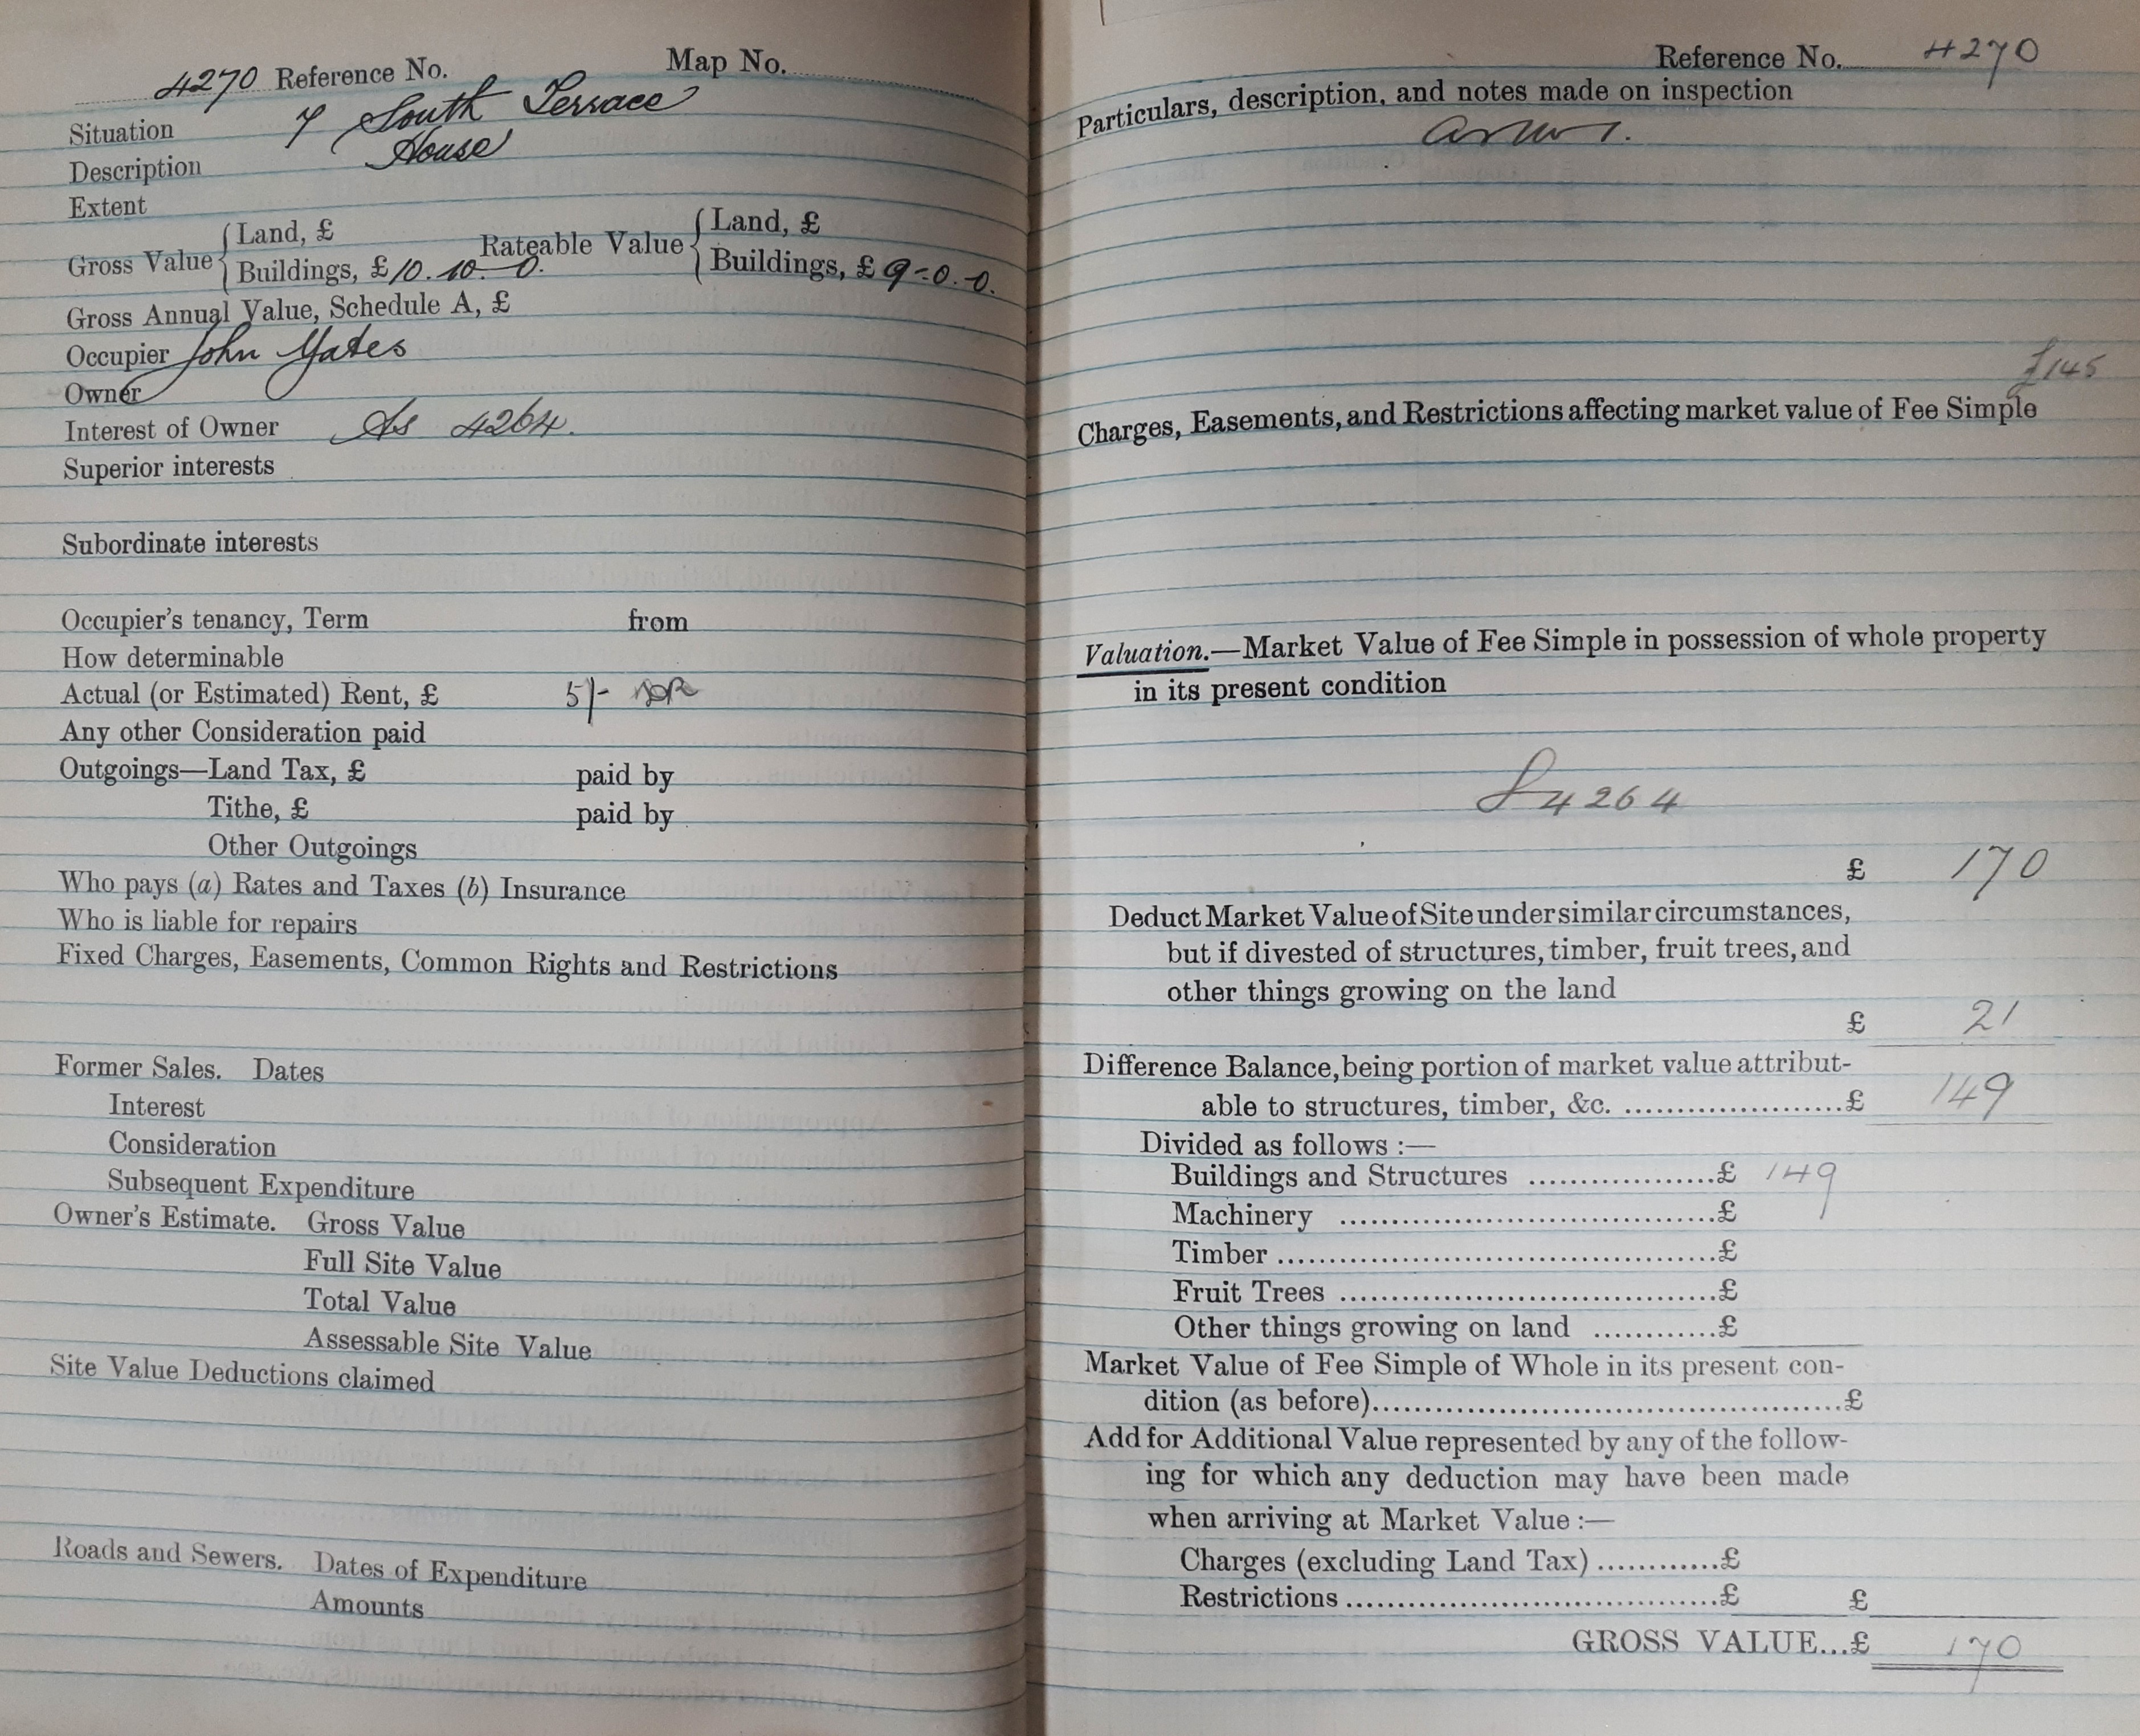 4270 Reference No. Map No.
Situation 7 South Terrace
Description House
Extent
Gross Value { Land, £ Rateable Value { Land, £
Buildings, £ 10. 10. 0. Buildings, £ 9-0-0.
Gross Annual Value, Schedule A, £
Occupier John Yates
Owner
Interest of Owner As 4264.
Superior interests
Subordinate interests
Occupier's tenancy, Term from
How determinable
Actual (or Estimated) Rent, £ 5/-
Any other Consideration paid
Outgoings—Land Tax, £ paid by
Tithe, £ paid by
Other Outgoings
Who pays (a) Rates and Taxes (b) Insurance
Who is liable for repairs
Fixed Charges, Easements, Common Rights and Restrictions
Former Sales. Dates
Interest
Consideration
Subsequent Expenditure
Owner's Estimate. Gross Value
Full Site Value
Total Value
Assessable Site Value
Site Value Deductions claimed
Roads and Sewers. Dates of Expenditure
Amounts
Reference No. 4270
Particulars, description, and notes made on inspection
£145
Charges, Easements, and Restrictions affecting market value of Fee Simple
Valuation.—Market Value of Fee Simple in possession of whole property
in its present condition
4264
£ 170
Deduct Market Value of Site under similar circumstances,
but if divested of structures, timber, fruit trees, and
other things growing on the land
£ 21
Difference Balance, being portion of market value attribut-
able to structures, timber, &c. ......................£ 149
Divided as follows :—
Buildings and Structures ...................£ 149
Machinery ......................................£
Timber ............................................£
Fruit Trees ......................................£
Other things growing on land ............£
Market Value of Fee Simple of Whole in its present con-
dition (as before)...............................................£
Add for Additional Value represented by any of the follow-
ing for which any deduction may have been made
when arriving at Market Value :—
Charges (excluding Land Tax) ............£
Restrictions .....................................£ £
GROSS VALUE...£ 170